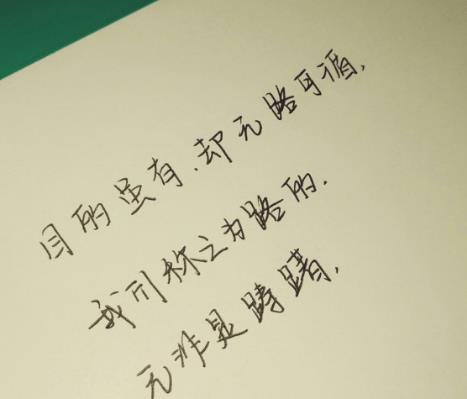 目的虽有、却无路可循，
我们称之为路的，
无非是踌躇，